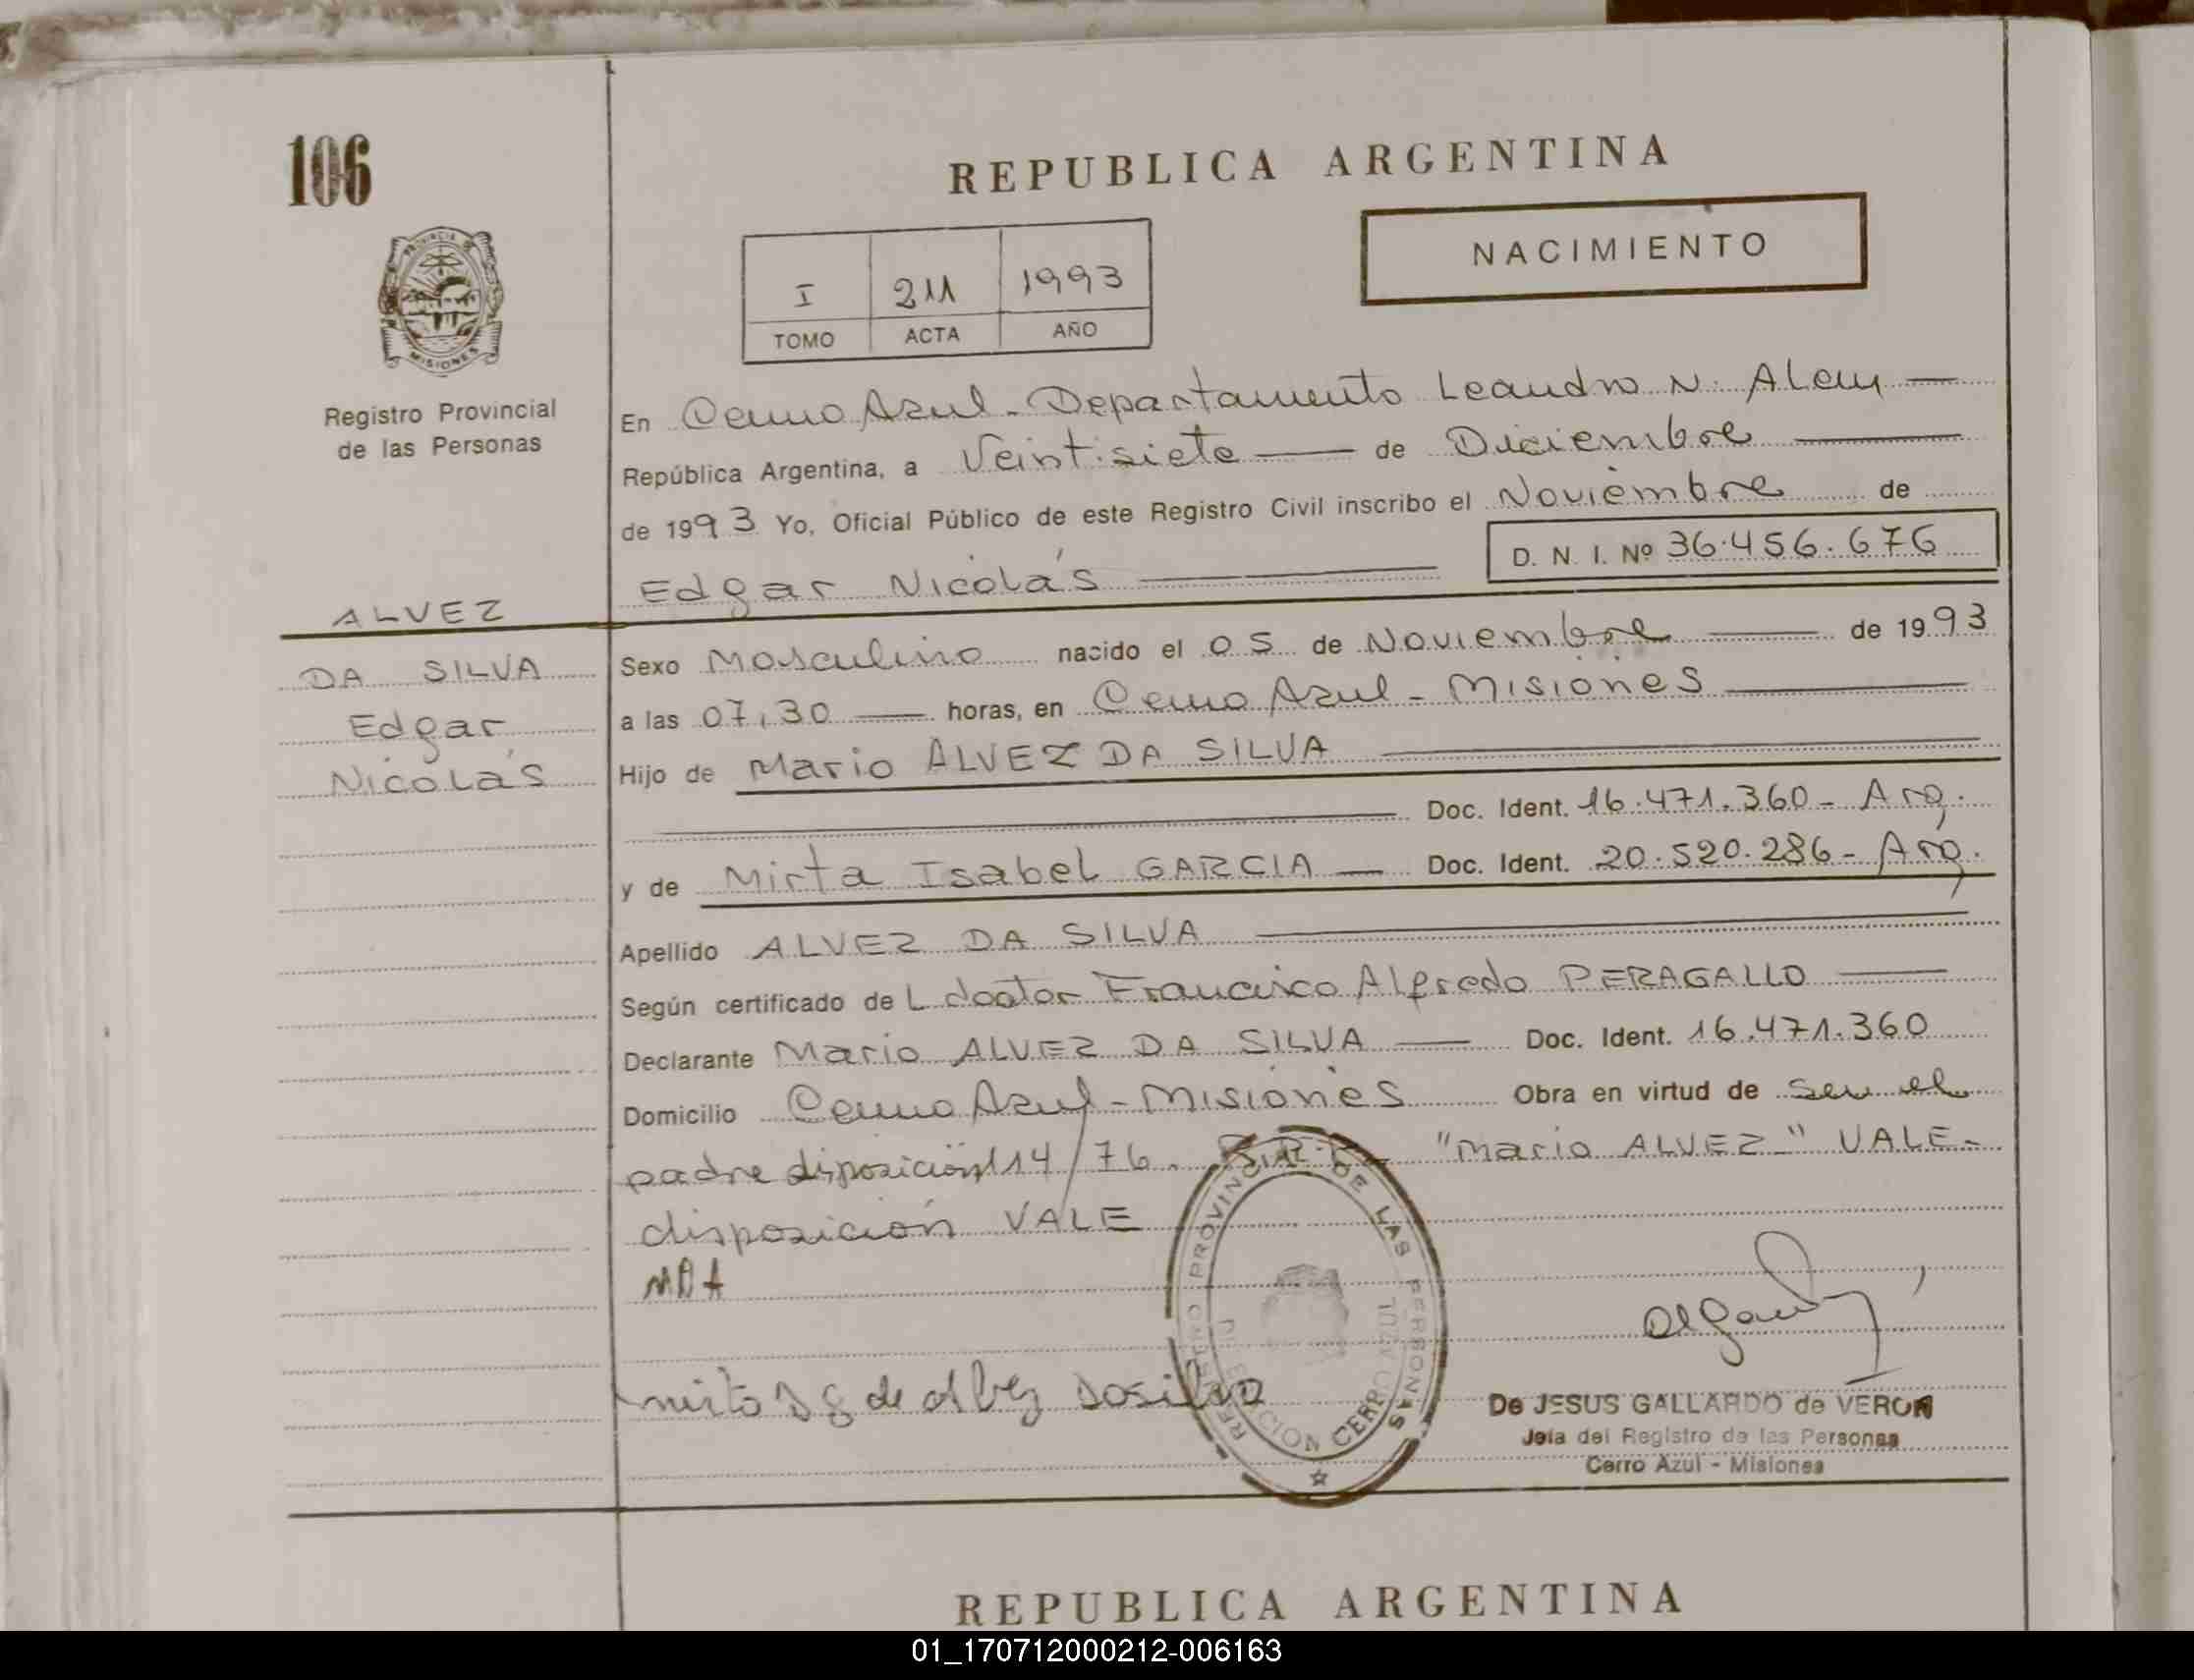 106
REPUBLICA ARGENTINA
PROVINCIA DE MISIONES
Registro Provincial
de las Personas
NACIMIENTO
I 211 1993
TOMO ACTA AÑO
En Cerro Azul - Departamento Leandro N. Alem
República Argentina, a Veintisiete de Diciembre
de 1993 Yo, Oficial Público de este Registro Civil inscribo el Noviembre de
D. N. I. Nº 36.456.676
Edgar Nicolás
ALVEZ
DA SILVA
Edgar
Nicolás
Sexo Masculino nacido el 05 de Noviembre de 1993
a las 07,30 horas, en Cerro Azul - Misiones
Hijo de Mario ALVEZ DA SILVA
Doc. Ident. 16.471.360 - Arg.
y de Mirta Isabel GARCIA Doc. Ident. 20.520.286 - Arg.
Apellido ALVEZ DA SILVA
Según certificado de L doctor Francisco Alfredo PERAGALLO
Declarante Mario ALVEZ DA SILVA Doc. Ident. 16.471.360
Domicilio Cerro Azul - Misiones Obra en virtud de ser el
padre disposición 114/76. "Mario ALVEZ" VALE-
disposición VALE
REGISTRO PROVINCIAL DE LAS PERSONAS
CERRO AZUL
De JESUS GALLARDO de VERON
Jefa del Registro de las Personas
Cerro Azul - Misiones
REPUBLICA ARGENTINA
01_170712000212-006163